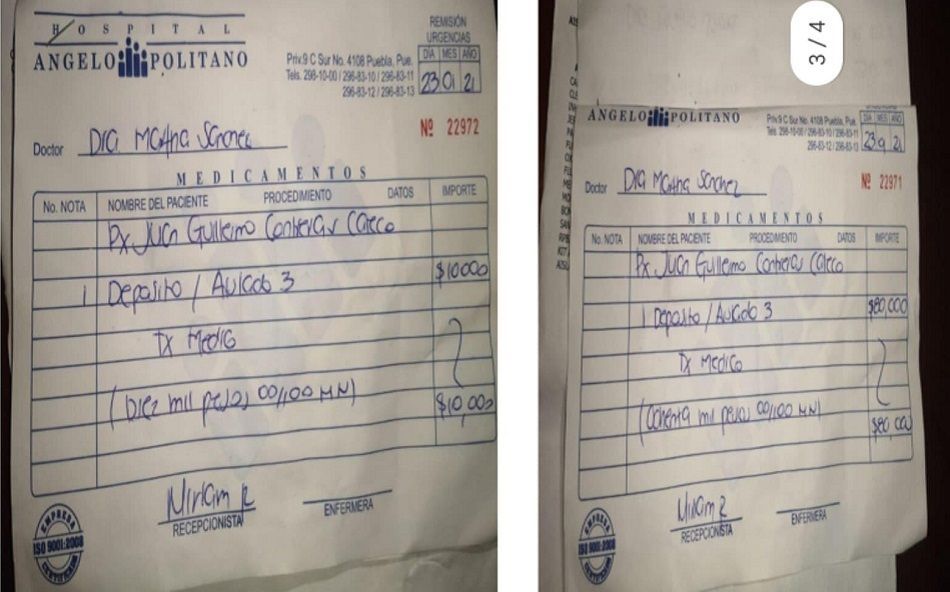 HOSPITAL
ANGELO POLITANO
REMISIÓN
URGENCIAS
Priv.9 C Sur No. 4108 Puebla, Pue.
Tels. 296-10-00 / 296-83-10 / 296-83-11
296-83-12 / 296-83-13
DÍA MES AÑO
23 01 21
Nº 22972
Doctor Dra Martha Sanchez
MEDICAMENTOS
No. NOTA NOMBRE DEL PACIENTE PROCEDIMIENTO DATOS IMPORTE
Px Juan Guillermo Contreras
1 Deposito / 3 $10000
Tx Medico
(Diez mil pesos 00/100 MN) $10,000
Miriam R
RECEPCIONISTA
ENFERMERA
EMPRESA
ISO 9001:2008
CERTIFICADA
3/4
ANGELO POLITANO
Priv.9 C Sur No. 4108 Puebla, Pue.
Tels. 296-10-00 / 296-83-10 / 296-83-11
296-83-12 / 296-83-13
DÍA MES AÑO
23 21
Nº 22971
Doctor Dra Martha Sanchez
MEDICAMENTOS
No. NOTA NOMBRE DEL PACIENTE PROCEDIMIENTO DATOS IMPORTE
Px Juan Guillermo Contreras
1 Deposito / 3 $80,000
Tx Medico
(Ochenta mil pesos 00/100 MN) $80,000
Miriam R
RECEPCIONISTA
ENFERMERA
EMPRESA
ISO 9001:2008
CERTIFICADA